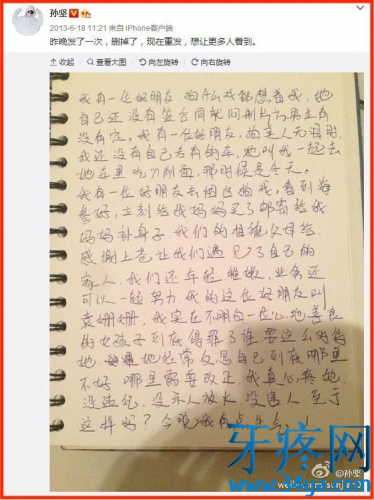 孙坚
2013-6-18 11:21 来自 iPhone客户端
昨晚发了一次，删掉了，现在重发，想让更多人看到。
收起 查看大图 向左旋转 向右旋转
我有一位好朋友,拍什么戏都想着我,她
自己还没有签合同就问制片方男主角
没有定。我有一位好朋友,拍
我还没有自己专有的车,她叫我一起去
她车里吃刀削面,那时候是冬天。
我有一位好朋友去烟台拍戏,看到海
参好,立刻给我妈妈买了邮寄给我
妈妈补身子 我们的
感谢上苍让我们遇见了自己的
家人,我们还年轻稚嫩,业务还
可以一起努力 我的这位好朋友叫
袁姗姗,我实在不明白一位心地善良
的女孩子到底得罪了谁要这么对待
她 她经常反思自己到底哪里
不好 哪里需要改正,我真心疼她,
没违纪,没杀人放火 没害人 至于
这样吗?今晚我有点生气!
牙疼网
www.34gr.com
@孙坚